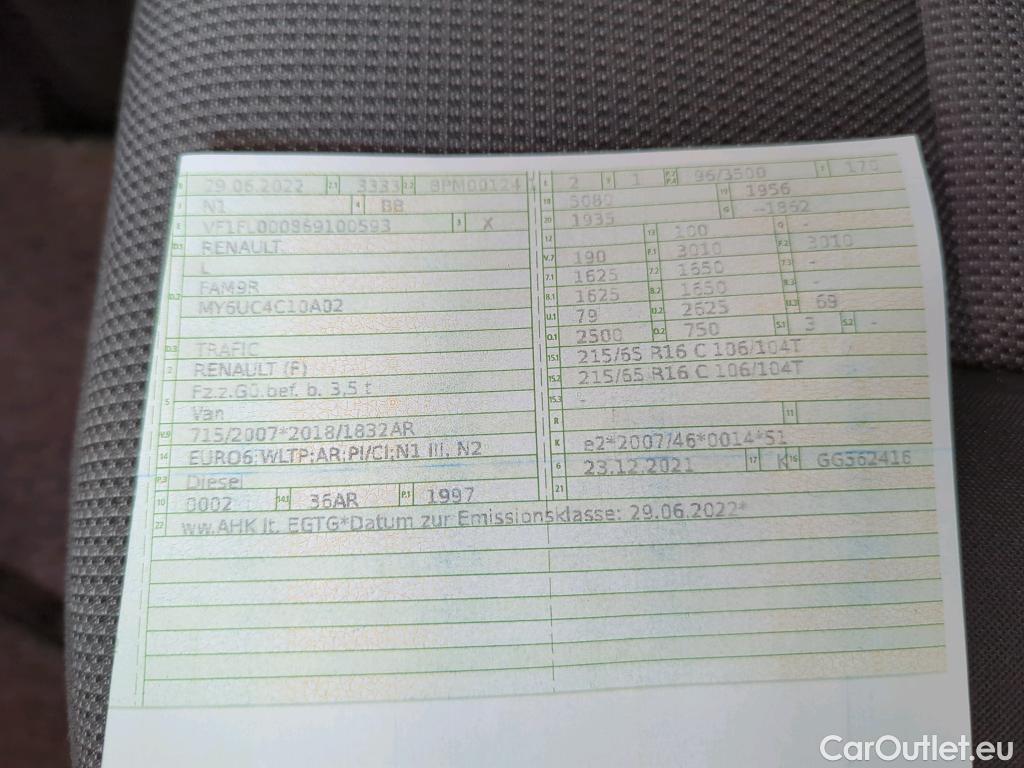 B 29.06.2022 2.1 3333 2.2 BPM00124
J N1 4 BB
E VF1FL000869100593 3 X
D.1 RENAULT
L
D.2 FAM9R
MY6UC4C10A02
D.3 TRAFIC
2 RENAULT (F)
5 Fz.z.Gü.bef. b. 3,5 t
Van
V.9 715/2007*2018/1832AR
14 EURO6;WLTP;AR;PI/CI;N1 III, N2
P.3 Diesel
10 0002 14.1 36AR P.1 1997
22 ww.AHK lt. EGTG*Datum zur Emissionsklasse: 29.06.2022*
L 2 9 1 P.2 P.4 96/3500 T 170
18 5080 19 1956
20 1935 G --1862
12 - 13 100 Q -
V.7 190 F.1 3010 F.2 3010
7.1 1625 7.2 1650 7.3 -
8.1 1625 8.2 1650 8.3 -
U.1 79 U.2 2625 U.3 69
O.1 2500 O.2 750 S.1 3 S.2 -
15.1 215/65 R16 C 106/104T
15.2 215/65 R16 C 106/104T
15.3 -
R 11
K e2*2007/46*0014*51
6 23.12.2021 17 K 16 GG362416
21
CarOutlet.eu